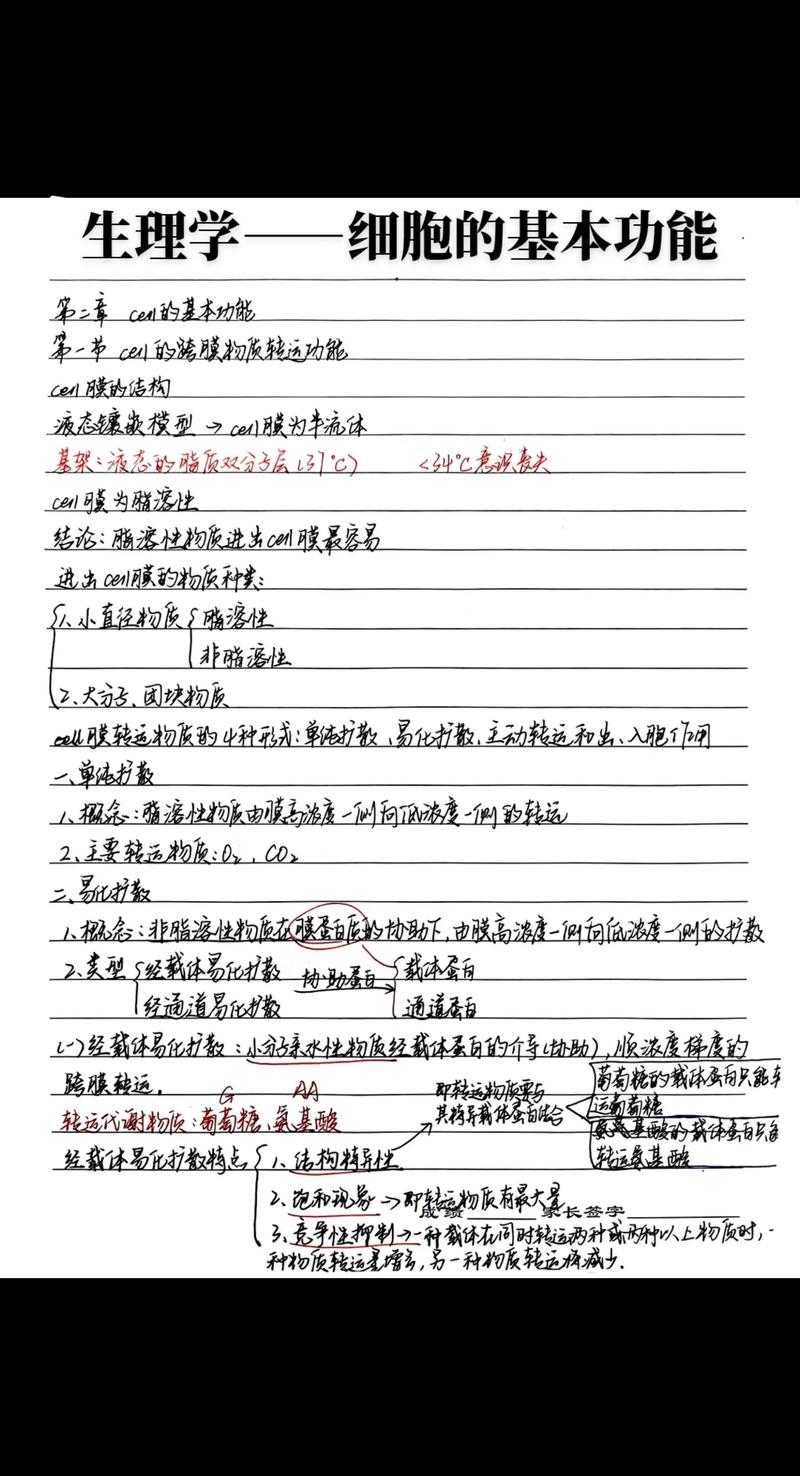 生理学——细胞的基本功能
第二章 cell的基本功能
第一节 cell的跨膜物质转运功能
cell膜的结构
液态镶嵌模型→cell膜为半流体
基架:液态的脂质双分子层(37℃) <34℃意识丧失
cell膜为脂溶性
结论:脂溶性物质进出cell膜最容易
进出cell膜的物质种类:
1、小直径物质{脂溶性
非脂溶性
2、大分子、团块物质
cell膜转运物质的4种形式:单纯扩散、易化扩散、主动转运和出、入胞作用
一、单纯扩散
1、概念:脂溶性物质由膜高浓度一侧向低浓度一侧的转运
2、主要转运物质:O₂、CO₂
二、易化扩散
1、概念:非脂溶性物质在膜蛋白质的协助下,由膜高浓度一侧向低浓度一侧的扩散
2、类型{经载体易化扩散 协助蛋白→{载体蛋白
经通道易化扩散 通道蛋白
(一)经载体易化扩散:小分子亲水性物质经载体蛋白的介导(协助),顺浓度梯度的
跨膜转运。
G AA
转运代谢物质:葡萄糖、氨基酸
即转运物质要与
其特异载体蛋白结合
葡萄糖的载体蛋白只能转
运葡萄糖
氨基酸的载体蛋白只能
转运氨基酸
经载体易化扩散特点{1、结构特异性
2、饱和现象→即转运物质有最大量
成绩 家长签字
3、竞争性抑制→一种载体在同时转运两种或两种以上物质时,一
种物质转运量增多,另一种物质转运将减少.